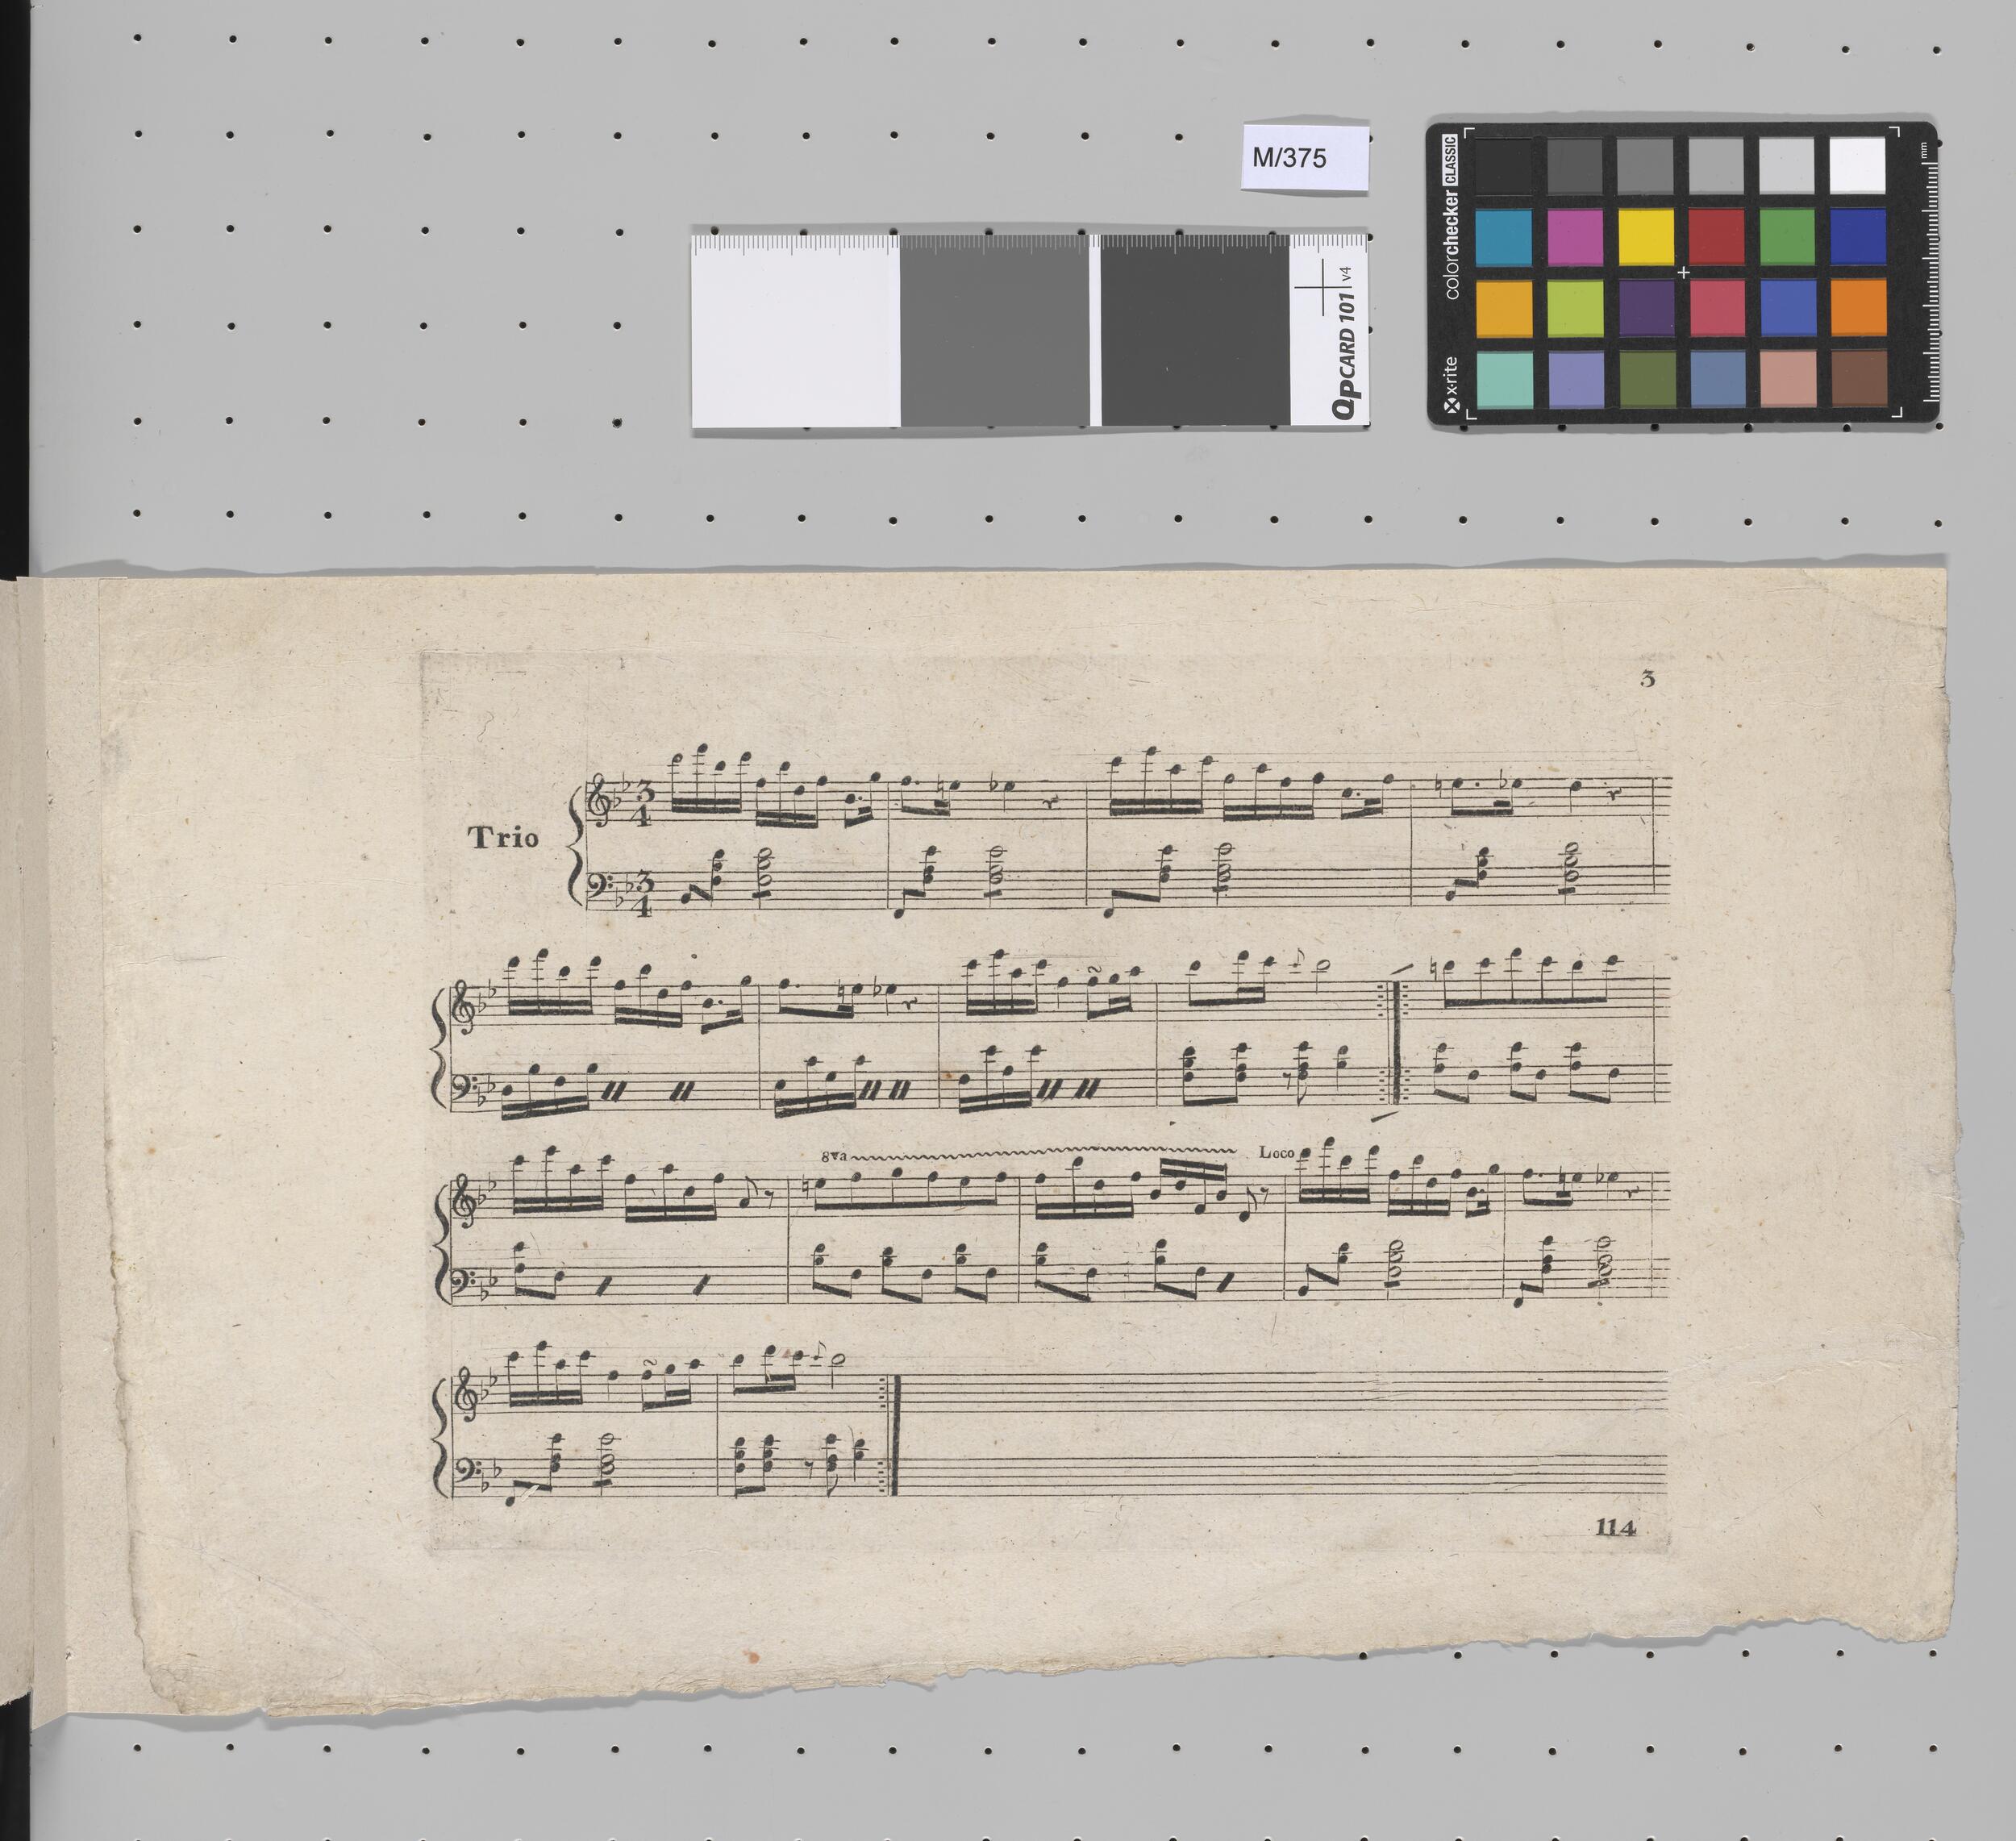 M/375
QPCARD 101 v4
colorchecker CLASSIC
x-rite
mm
3
Trio
3
4
3
4
8va
Loco
114